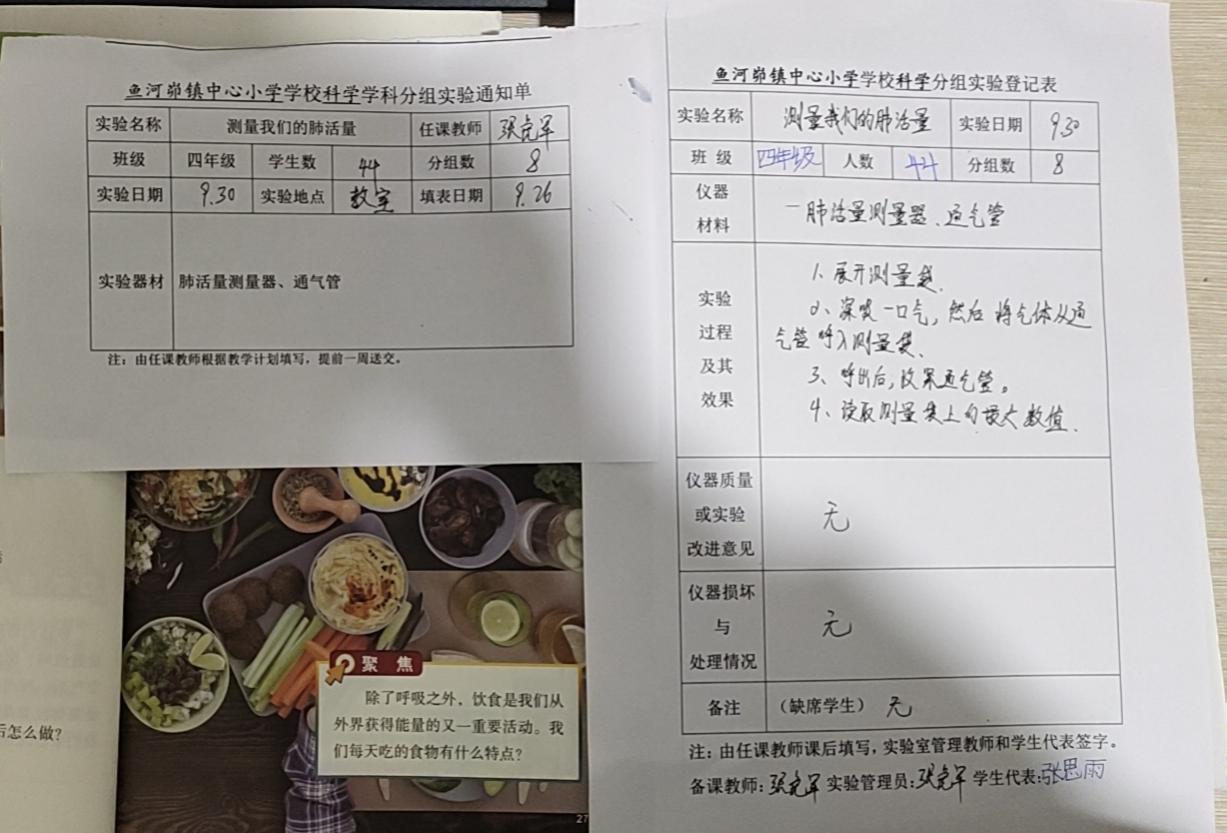 鱼河峁镇中心小学学校科学学科分组实验通知单
实验名称 测量我们的肺活量 任课教师
班级 四年级 学生数 44 分组数 8
实验日期 9.30 实验地点 教室 填表日期 9.26
实验器材 肺活量测量器、通气管
注：由任课教师根据教学计划填写，提前一周送交。
鱼河峁镇中心小学学校科学分组实验登记表
实验名称 测量我们的肺活量 实验日期 9.30
班 级 四年级 人数 44 分组数 8
仪器
材料
一肺活量测量器、通气管
实验
过程
及其
效果
1、展开测量袋、
2、深吸一口气，然后将气体从通
气管呼入测量袋、
3、呼出后，通气管。
4、读取测量袋上的最大数值、
仪器质量
或实验
改进意见
无
仪器损坏
与
处理情况
无
备注 （缺席学生） 无
注：由任课教师课后填写，实验室管理教师和学生代表签字。
备课教师: 实验管理员: 学生代表:张思雨
聚 焦
除了呼吸之外，饮食是我们从
外界获得能量的又一重要活动。我
们每天吃的食物有什么特点？
后怎么做？
27